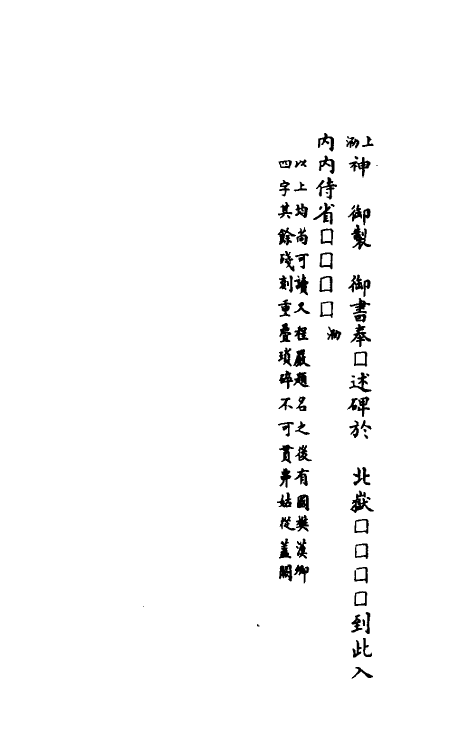 上泐神　御製　御書奉□述碑於　北嶽□□□□到此入
内内侍省□□□□泐
以上均尚可讀又程嚴題名之後有國樊漢卿
四字其餘殘刻重疊瑣碎不可貫串姑從蓋闕